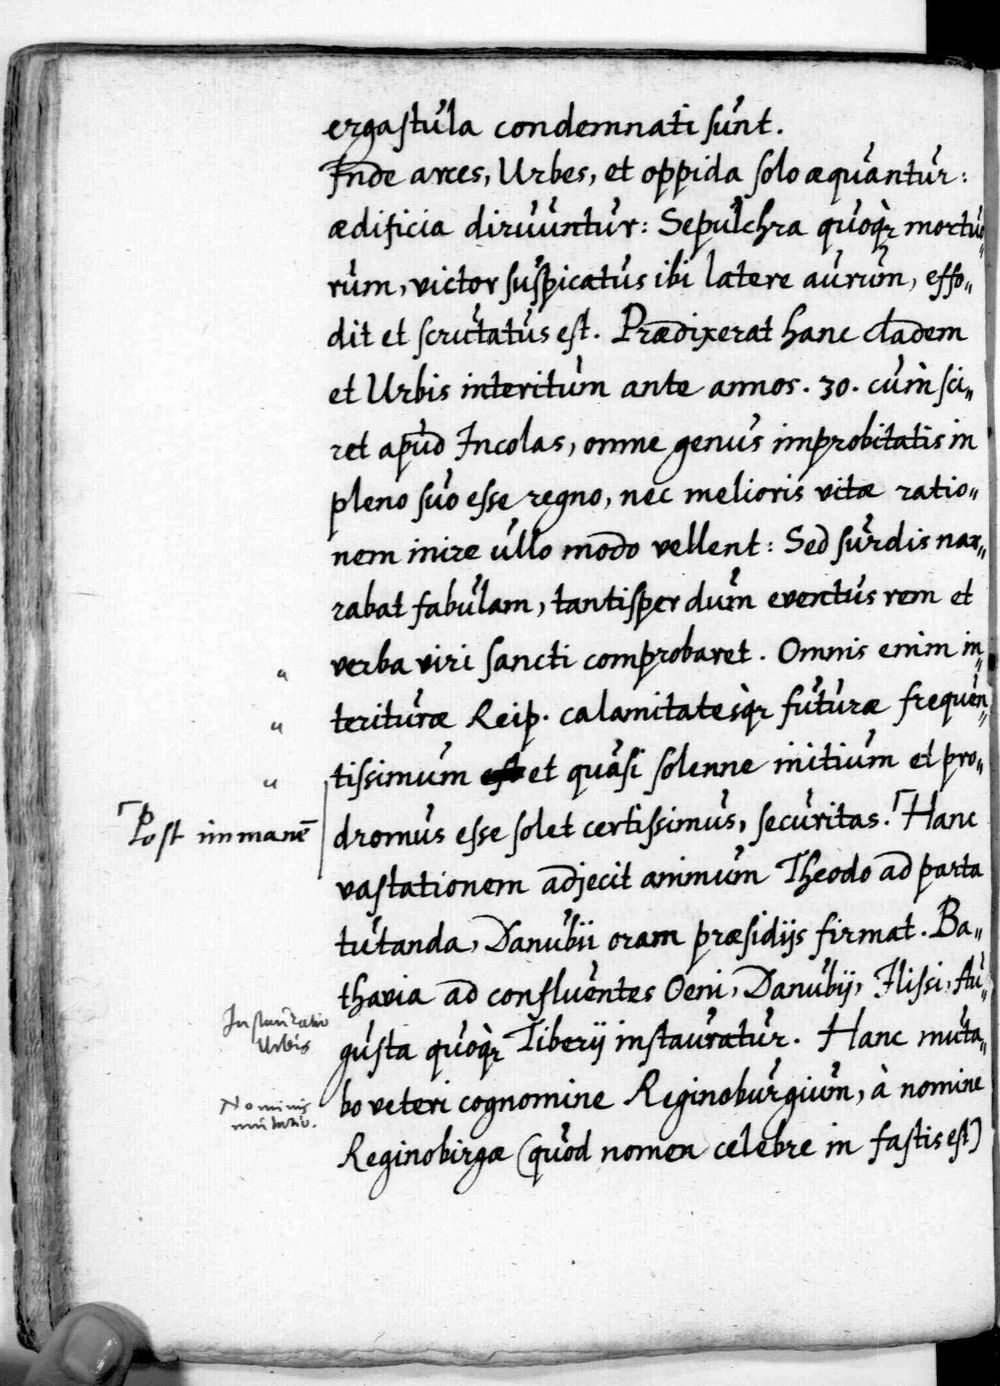 ergastula condemnati sunt.
Inde arces, Urbes, et oppida solo æquantur:
ædificia diruuntur: Sepulchra quoq; mortuo„
rum, victor suspicatus ibi latere aurum, effo„
dit et scrutatus est. Prædixerat hanc cladem
et Urbis interitum ante annos. 30. cum sci„
ret apud Incolas, omne genus improbitatis in
pleno suo esse regno, nec melioris vitæ ratio„
nem inire ullo modo vellent: Sed surdis nar„
rabat fabulam, tantisper dum eventus rem et
„ verba viri sancti comprobaret. Omnis enim in„
„ terituræ Reip. calamitatesq; futuræ frequen„
„ tissimum est et quasi solenne initium et pro„
dromus esse solet certissimus, securitas. ⌈Hanc
⌈Post immanē
vastationem adjecit animum Theodo ad parta
tutanda, Danubii oram præsidijs firmat. Ba„
thavia ad confluentes Oeni, Danubij, Ilissi, Au„
Instauratio
Urbis
gusta quoq; Tiberij instauratur. Hanc muta„
Nominis
mutatio.
bo veteri cognomine Reginoburgium, à nomine
Reginobirgæ (quod nomen celebre in fastis est)